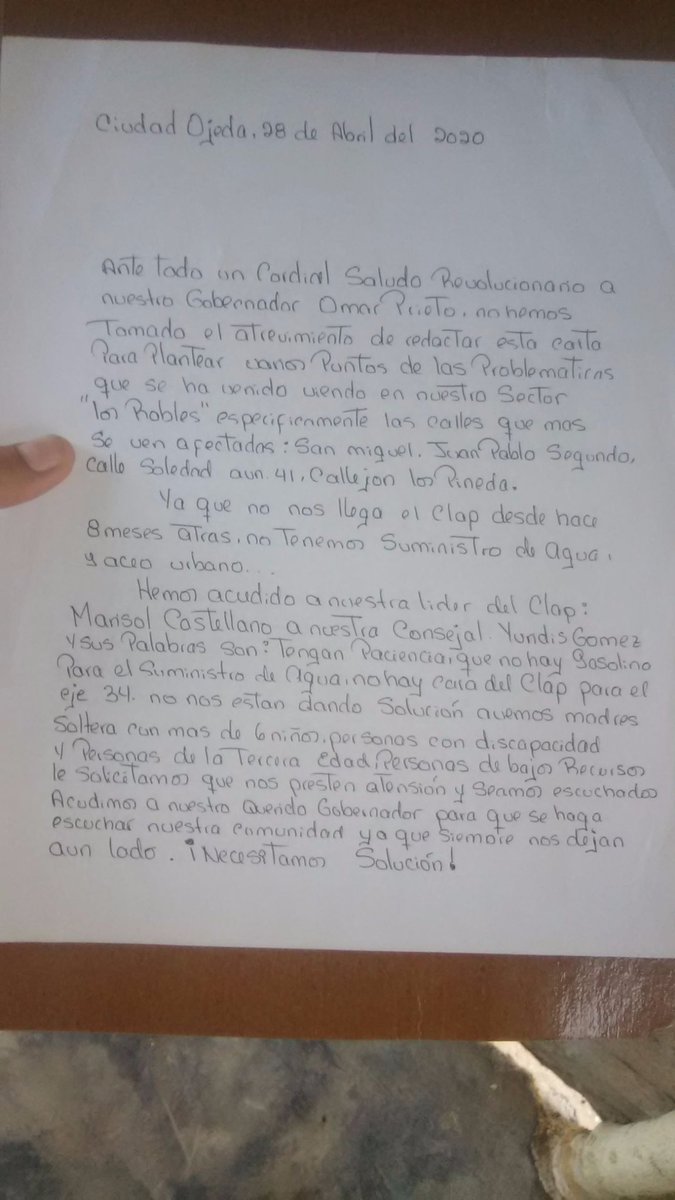 Ciudad Ojeda, 28 de Abril del 2020
Ante todo un Cordial Saludo Revolucionario a
nuestro Gobernador Omar Prieto. no hemos
Tomado el atrevimiento de redactar esta carta
Para Plantear varios Puntos de las Problematicas
que se ha venido viendo en nuestro Sector
"los Robles" especificamente las calles que mas
Se ven afectadas: San miguel. Juan Pablo Segundo,
calle Soledad aun. 41, Callejon los Pineda.
Ya que no nos llega el Clap desde hace
8 meses atras, no Tenemos Suministro de Agua,
y aceo urbano...
Hemos acudido a nuestra lider del Clap:
Marisol Castellano a nuestra Consejal. Yundis Gomez
y sus Palabras son: Tengan Paciencia, que no hay Gasolina
Para el Suministro de Agua, no hay caja del Clap para el
eje 34. no nos estan dando Solución avemos madres
Soltera con mas de 6 niños, personas con discapacidad
y Personas de la Tercera Edad, Personas de bajos Recursos
le Solicitamos que nos presten atensión y Seamos escuchados
Acudimos a nuestro Querido Gobernador para que se haga
escuchar nuestra comunidad ya que Siempre nos dejan
aun lado. ¡Necesitamos Solución!